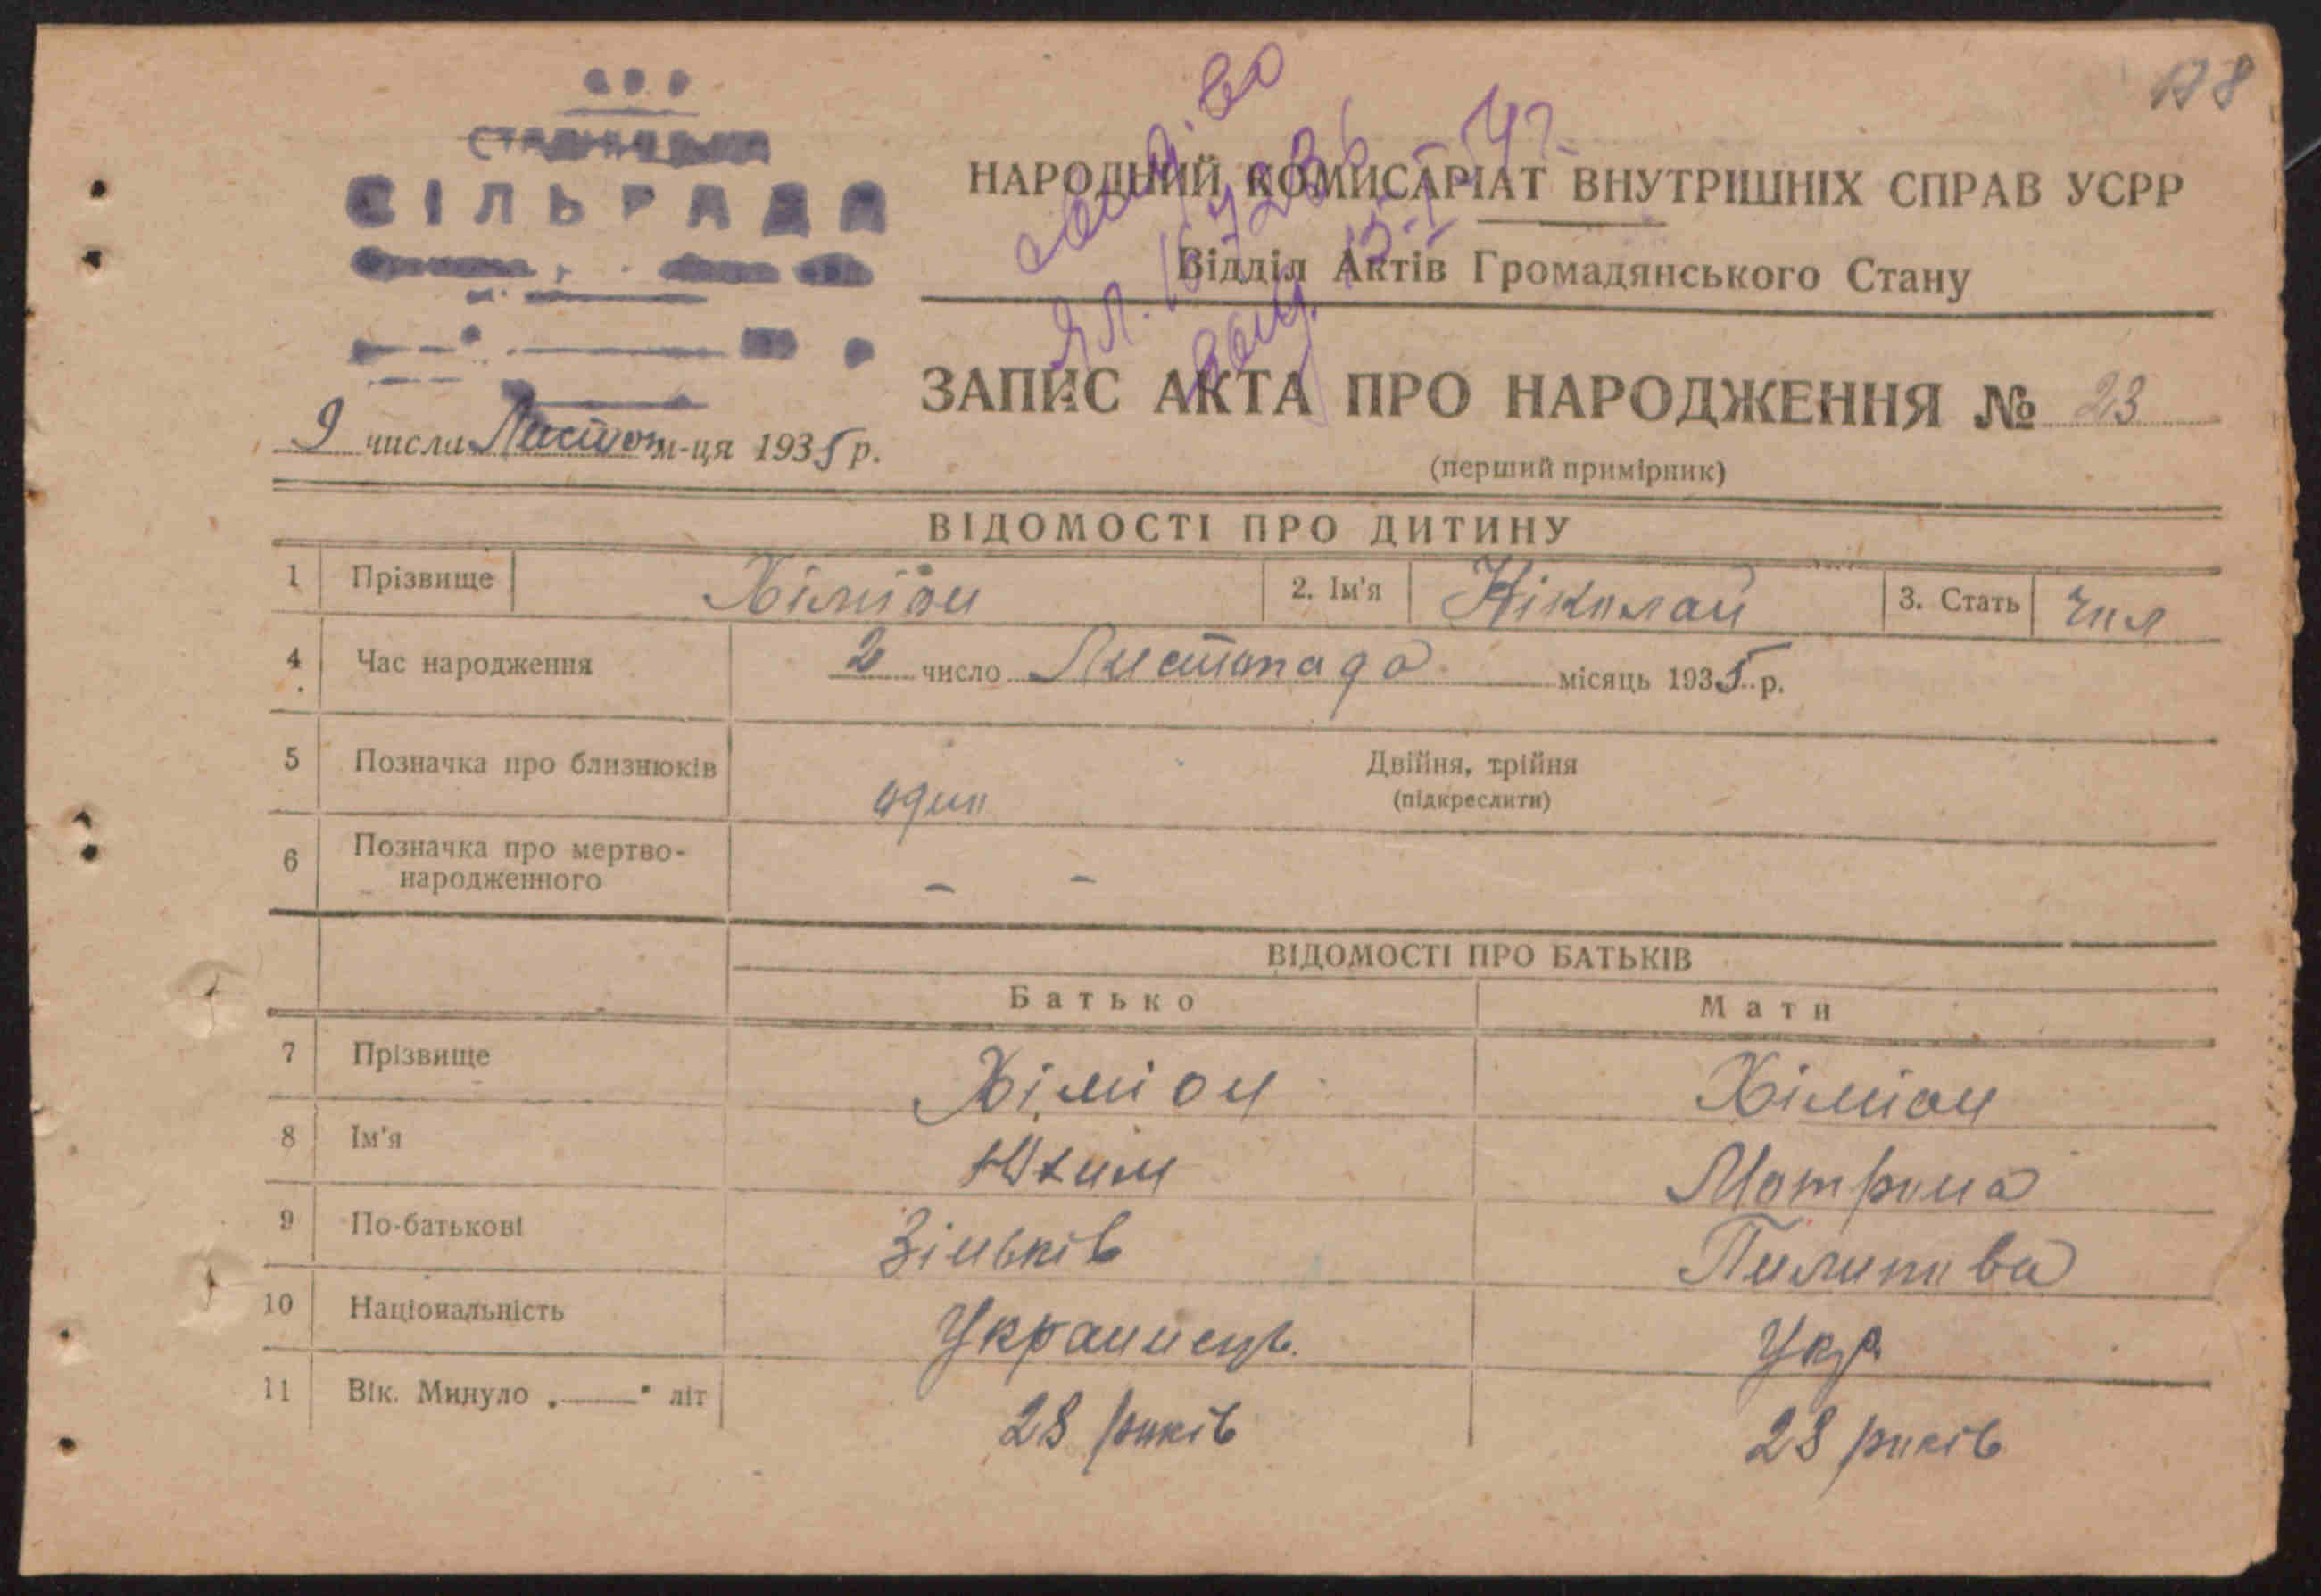 СІЛЬРАДА
9 числа Листоп м-ця 1935 р.
НАРОДНИЙ КОМИСАРІАТ ВНУТРІШНІХ СПРАВ УСРР
Відділ Актів Громадянського Стану
ЗАПИС АКТА ПРО НАРОДЖЕННЯ № 23
(перший примірник)
ВІДОМОСТІ ПРО ДИТИНУ
1 Прізвище Хіміон 2. Ім'я Ніколай 3. Стать чол
4 Час народження 2 число Листопада місяць 1935 р.
5 Позначка про близнюків один Двійня, трійня
(підкреслити)
6 Позначка про мертво-
народженного - -
ВІДОМОСТІ ПРО БАТЬКІВ
Батько Мати
7 Прізвище Хіміон Хіміон
8 Ім'я Юхим Мотрона
9 По-батькові Зіньків Пилипова
10 Національність Украинець. Укр.
11 Вік. Минуло „——" літ 28 років 28 років